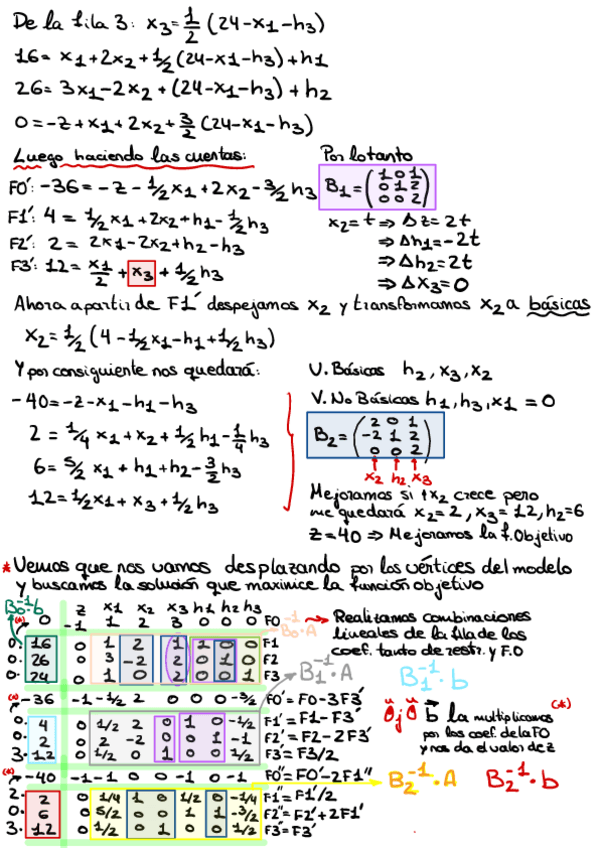 De la fila 3: x3 = 1/2 (24-x1-h3)
16 = x1+2x2+1/2(24-x1-h3)+h1
26 = 3x1-2x2+(24-x1-h3)+h2
0 = -z+x1+2x2+3/2(24-x1-h3)
Luego haciendo las cuentas:
F0': -36 = -z-1/2x1+2x2-3/2h3
F1': 4 = 1/2x1+2x2+h1-1/2h3
F2': 2 = 2x1-2x2+h2-h3
F3': 12 = x1/2 + x3 + 1/2h3
Por lo tanto
B1 = (1 0 1
0 1 2
0 0 2)
x2=t ⇒ Δz=2t
⇒ Δh1=-2t
⇒ Δh2=2t
⇒ Δx3=0
Ahora a partir de F1' despejamos x2 y transformamos x2 a básicas
x2 = 1/2 (4-1/2x1-h1+1/2h3)
Y por consiguiente nos quedará:
-40 = -z-x1-h1-h3
2 = 1/4 x1+x2+1/2h1-1/4h3
6 = 5/2 x1+h1+h2-3/2h3
12 = 1/2x1+x3+1/2h3
V. Básicas h2, x3, x2
V. No Básicas h1, h3, x1 = 0
B2 = (2 0 1
-2 1 2
0 0 2)
x2 h2 x3
Mejoramos si ↑x2 crece pero
me quedará x2=2, x3=12, h2=6
z=40 ⇒ Mejoramos la f.Objetivo
* Vemos que nos vamos desplazando por los vértices del modelo
y buscamos la solución que maximice la función objetivo
B0^-1·b
z x1 x2 x3 h1 h2 h3
(*) 0 -1 1 2 3 0 0 0 F0
0· 16 0 1 2 1 1 0 0 F1
0· 26 0 3 -2 2 0 1 0 F2
0· 24 0 1 0 2 0 0 1 F3
B0^-1·A
(*) -36 -1 -1/2 2 0 0 0 -3/2 F0'=F0-3F3'
0· 4 0 1/2 2 0 1 0 -1/2 F1'=F1-F3'
0· 2 0 2 -2 0 0 1 -1 F2'=F2-2F3'
3· 12 0 1/2 0 1 0 0 1/2 F3'=F3/2
(*) -40 -1 -1 0 0 -1 0 -1 F0''=F0'-2F1''
2· 2 0 1/4 1 0 1/2 0 -1/4 F1''=F1'/2
0· 6 0 5/2 0 0 1 1 -3/2 F2''=F2'+2F1'
3· 12 0 1/2 0 1 0 0 1/2 F3''=F3'
Realizamos combinaciones
lineales de la fila de los
coef. tanto de restr. y F.O
B1^-1·A
B1^-1·b
b la multiplicamos (*)
por los coef. de la FO
y nos da el valor de z
B2^-1·A B2^-1·b